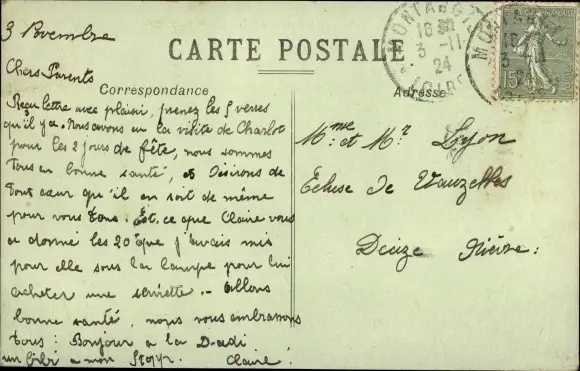 3 Novembre
CARTE POSTALE
Chers Parents
Correspondance
Adresse
Reçu lettre avec plaisir, prenez les 5 verres
qu'il y a. Nous avons eu la visite de Charlot
pour les 2 jours de fête, nous sommes
tous en bonne santé, et désirons de
tout cœur qu'il en soit de même
pour vous tous. Est-ce que Claire vous
a donné les 20 que j'avais mis
pour elle sous la lampe pour lui
acheter une serviette. - Allons
bonne santé, nous vous embrassons
tous : Bonjour a la Dadi
un bibi a mon
Claire !
Mme et Mr Lyon
Écluse de Vauzelles
Decize Nièvre :
MONTARGIS
16
3 - 11
24
LOIRET
15